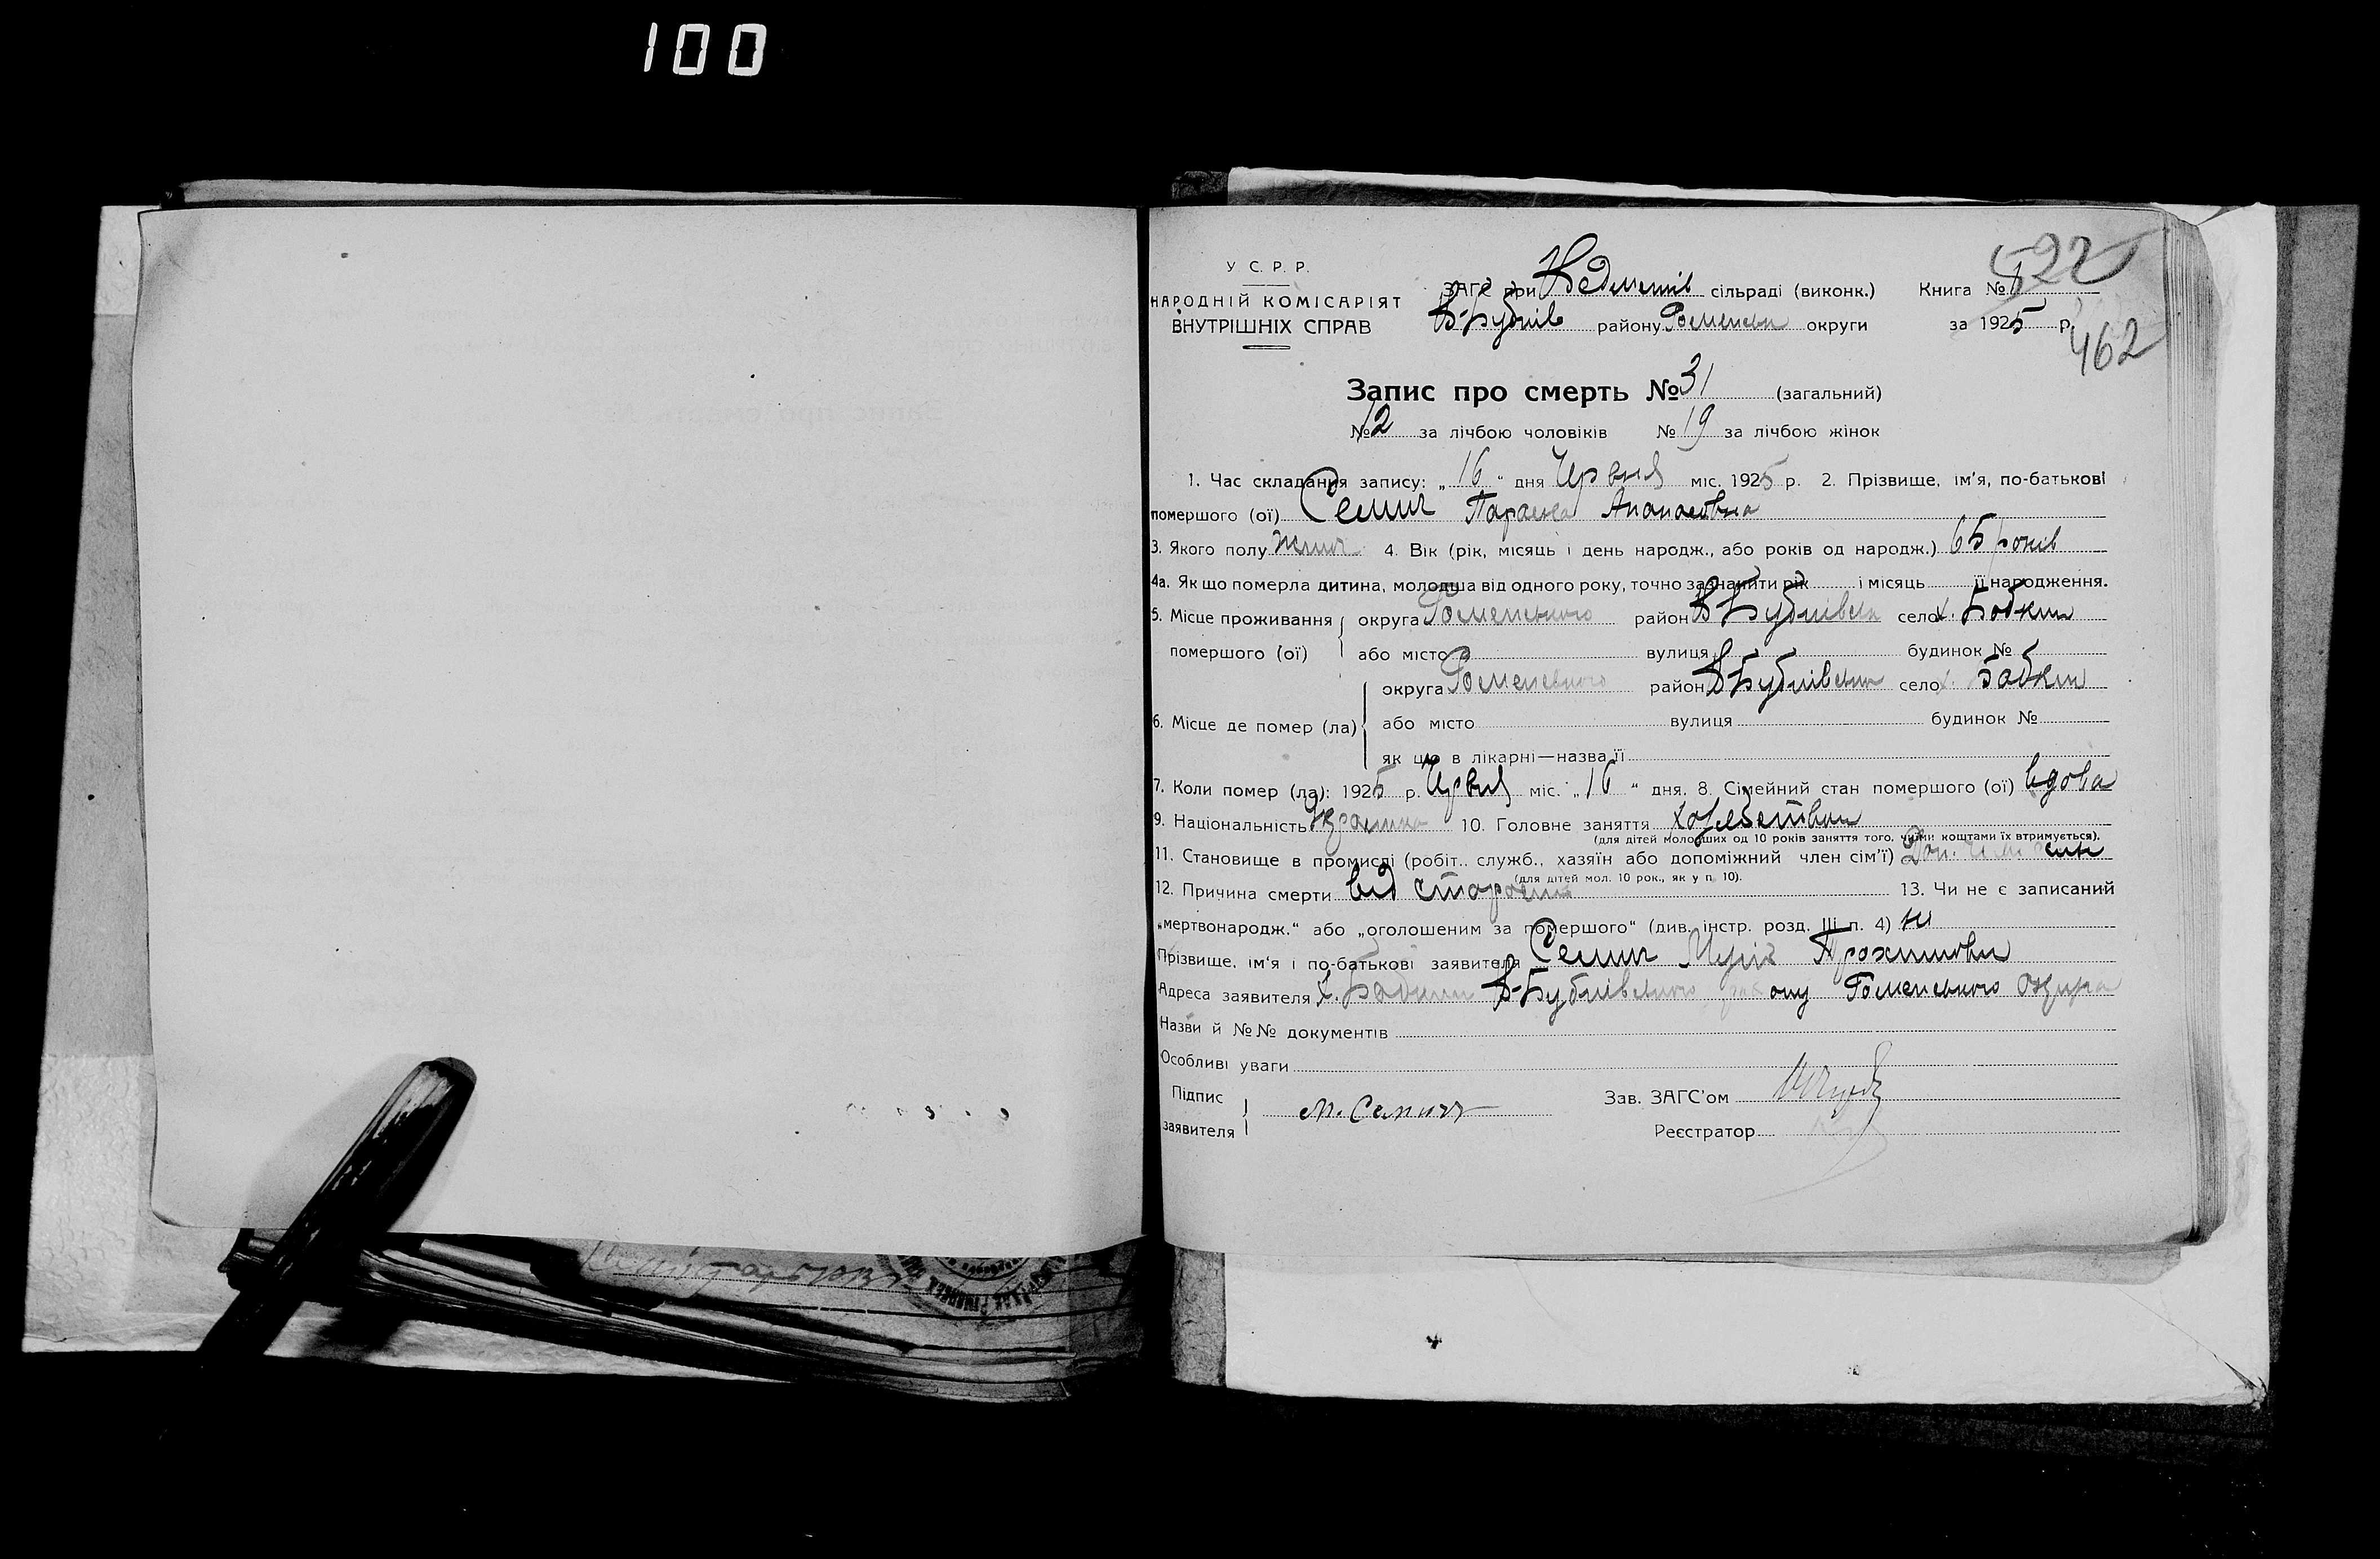 100
522
У С. Р. Р.
НАРОДНІЙ КОМІСАРІЯТ
ВНУТРІШНІХ СПРАВ
ЗАГС при сільраді (виконк.) Книга №
В-Бубнів району Роменськ округи за 1925 р.
462
Запис про смерть № 31 (загальний)
№ 12 за лічбою чоловіків № 19 за лічбою жінок
1. Час складання запису: „ 16 “ дня Червня міс. 1925 р. 2. Прізвище, ім'я, по-батькові
помершого (ої) Семич Параска Апанасовна
3. Якого полу жіноч 4. Вік (рік, місяць і день народж., або років од народж.) 65 років
4а. Як що померла дитина, молодша від одного року, точно зазначити рік і місяць її народження.
5. Місце проживання округа Роменського район В-Бубнівськ село х. Бабки
помершого (ої) або місто вулиця будинок №
округа Роменського район В-Бубнівськ село х. Бабки
6. Місце де помер (ла) або місто вулиця будинок №
як що в лікарні—назва її
7. Коли помер (ла): 1925 р. Червня міс. „ 16 “ дня. 8. Сімейний стан помершого (ої) вдова
9. Національність Українка 10. Головне заняття
(для дітей молодших од 10 років заняття того, чиїми коштами їх втримується).
11. Становище в промислі (робіт., служб., хазяїн або допоміжний член сім'ї) Доп.
(для дітей мол. 10 рок., як у п. 10).
12. Причина смерти від старости 13. Чи не є записаний
„мертвонародж.“ або „оголошеним за помершого“ (див. інстр. розд. III п. 4) ні
Прізвище, ім'я і по-батькові заявителя Семич Трохимович
Адреса заявителя х. Бабки В-Бубнівського району Роменського округа
Назви й №№ документів
Особливі уваги
Підпис
заявителя М. Семич
Зав. ЗАГС'ом
Реєстратор